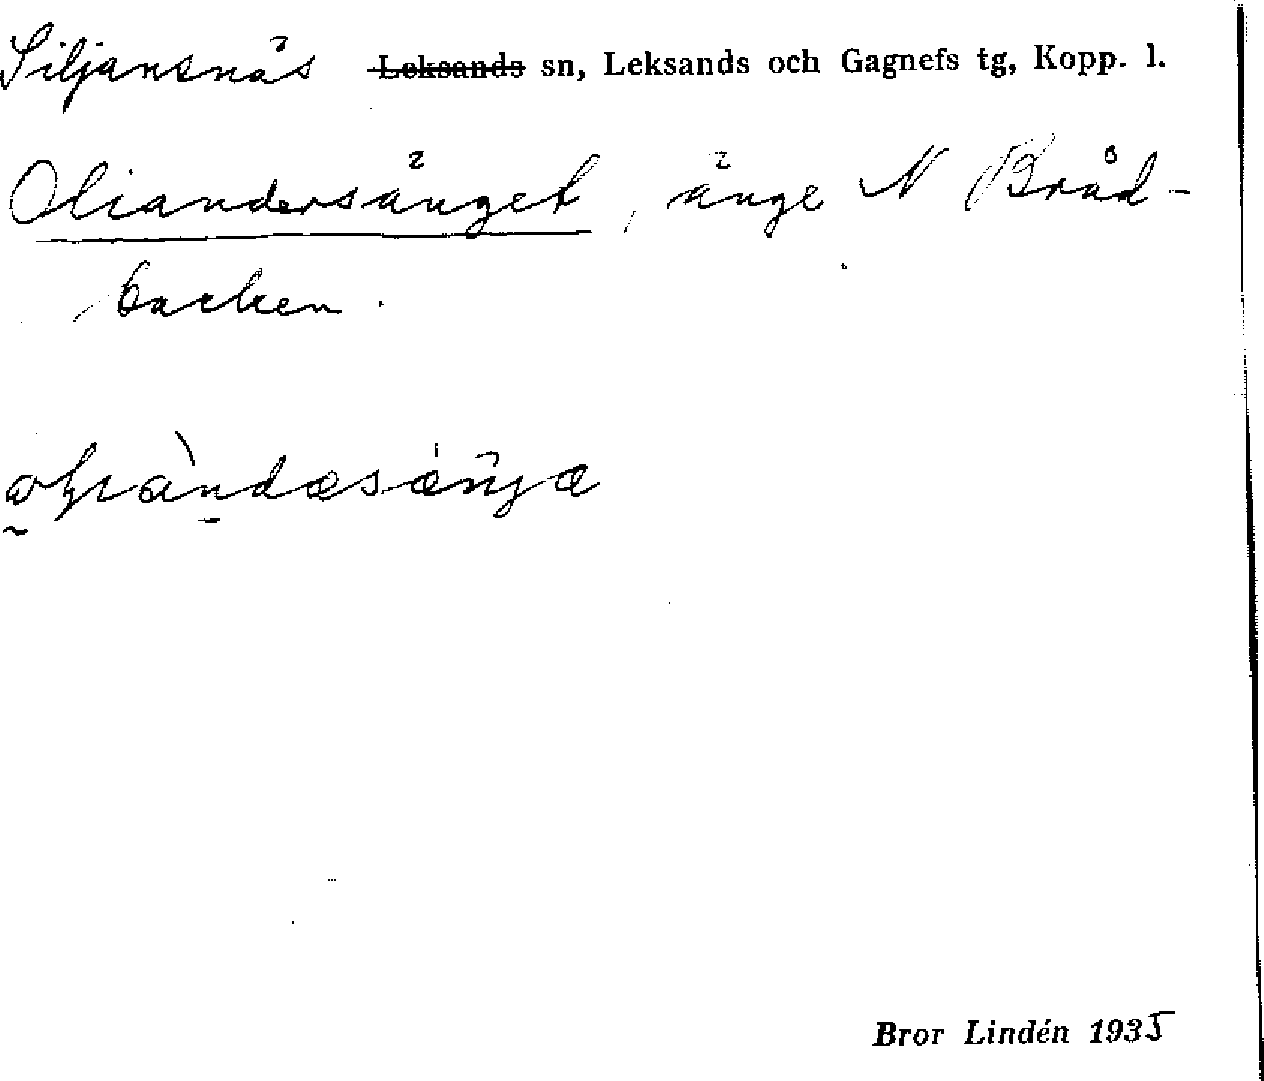 Siljansnäs ~~Leksands~~ sn, Leksands och Gagnefs tg, Kopp. l.
Oliandersänget, änge N Bråd-
backen.
Bror Lindén 1935